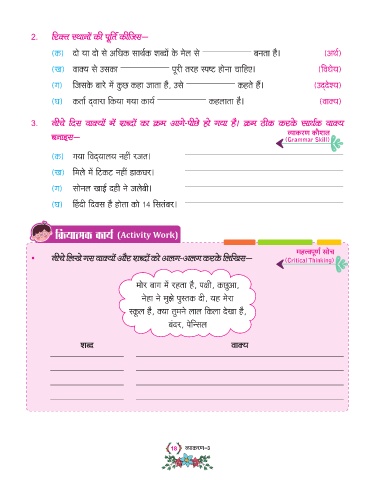 2. रिक्त स्थानों की पूर्ति कीजिए—
(क) दो या दो से अधिक सार्थक शब्दों के मेल से ____________ बनता है। (अर्थ)
(ख) वाक्य से उसका ____________ पूरी तरह स्पष्ट होना चाहिए। (विधेय)
(ग) जिसके बारे में कुछ कहा जाता है, उसे ____________ कहते हैं। (उद्देश्य)
(घ) कर्ता द्वारा किया गया कार्य ____________ कहलाता है। (वाक्य)
3. नीचे दिए वाक्यों में शब्दों का क्रम आगे-पीछे हो गया है। क्रम ठीक करके सार्थक वाक्य
बनाइए—
व्याकरण कौशल
(Grammar Skill)
(क) गया विद्यालय नहीं रजत।
(ख) मिले में टिकट नहीं डाकघर।
(ग) सोनल खाई दही ने जलेबी।
(घ) हिंदी दिवस है होता को 14 सितंबर।
क्रियात्मक कार्य (Activity Work)
महत्वपूर्ण सोच
(Critical Thinking)
• नीचे लिखे गए वाक्यों और शब्दों को अलग-अलग करके लिखिए—
मोर बाग में रहता है, पक्षी, कछुआ,
नेहा ने मुझे पुस्तक दी, यह मेरा
स्कूल है, क्या तुमने लाल किला देखा है,
बंदर, पेन्सिल
शब्द वाक्य
18 व्याकरण–3